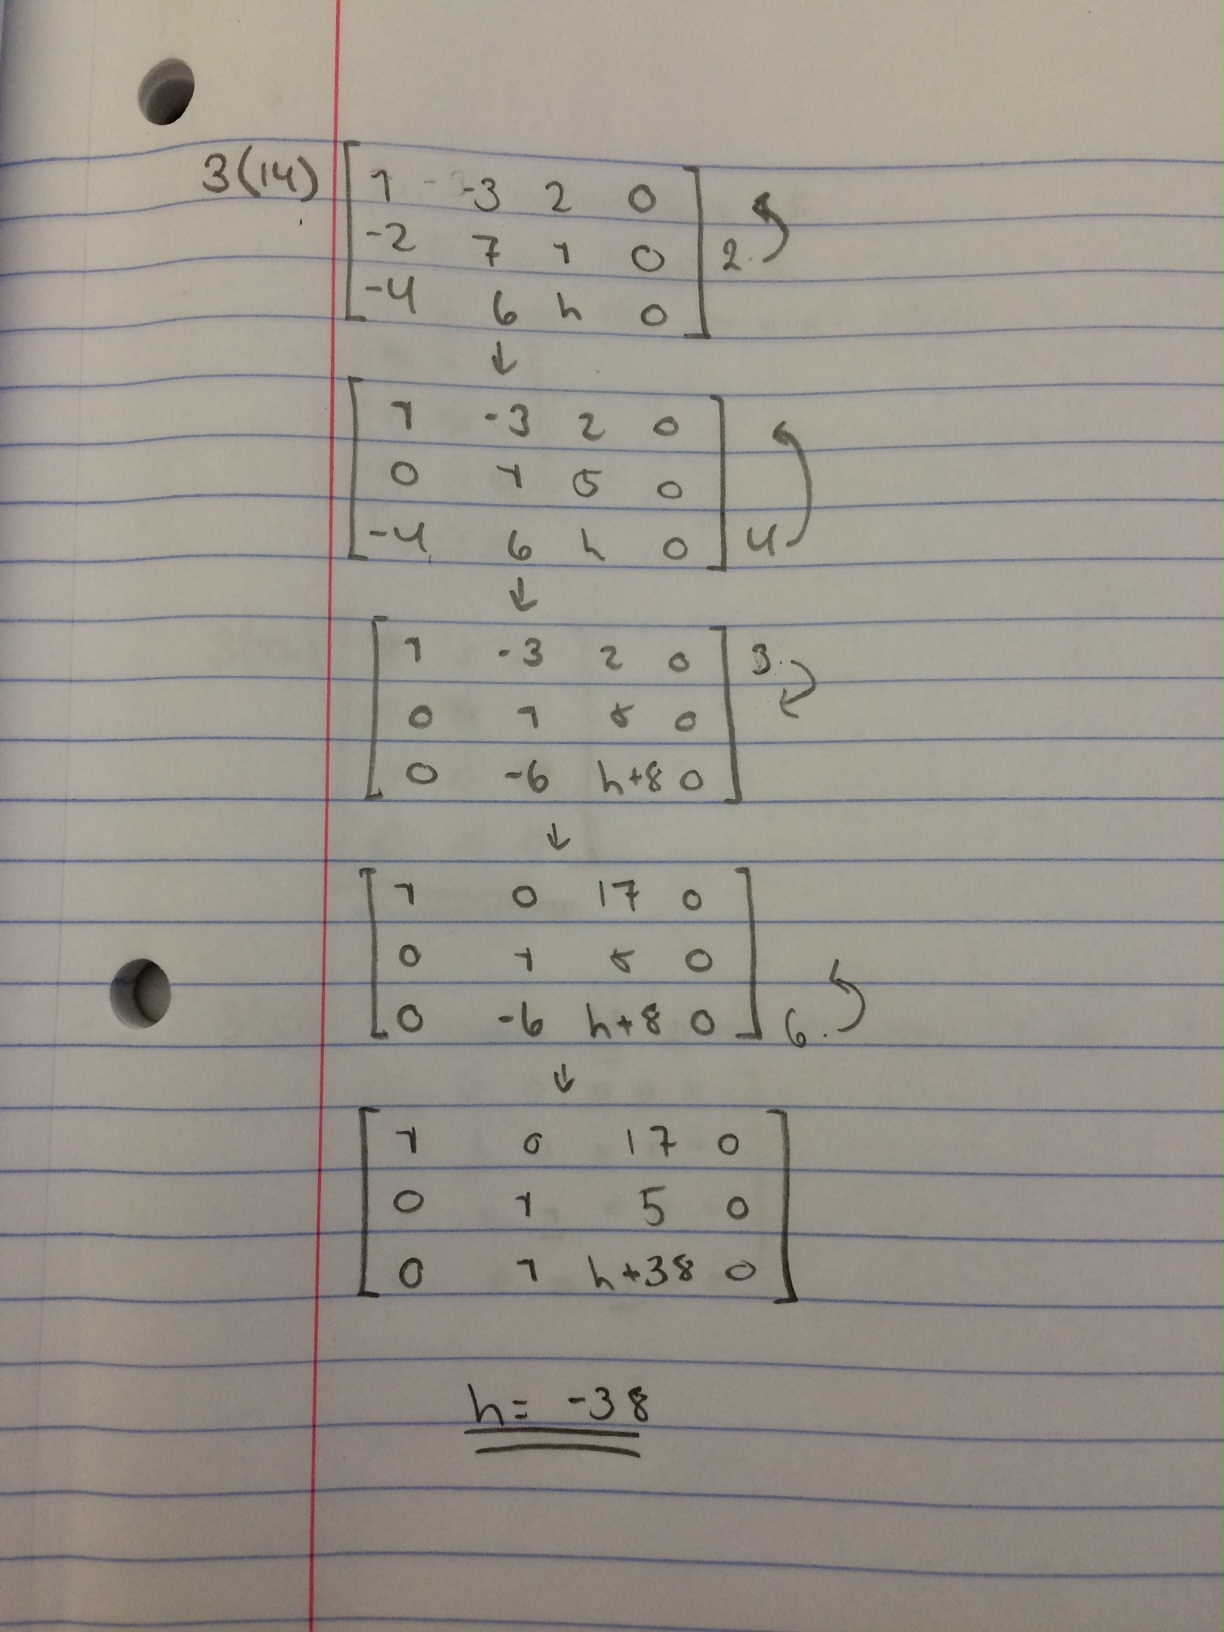 3(14) 1 -3 2 0
-2 7 1 0 2
-4 6 h 0
↓
1 -3 2 0
0 1 5 0
-4 6 h 0 4
↓
1 -3 2 0 3
0 1 5 0
0 -6 h+8 0
↓
1 0 17 0
0 1 5 0
0 -6 h+8 0 6
↓
1 0 17 0
0 1 5 0
0 1 h+38 0
h= -38